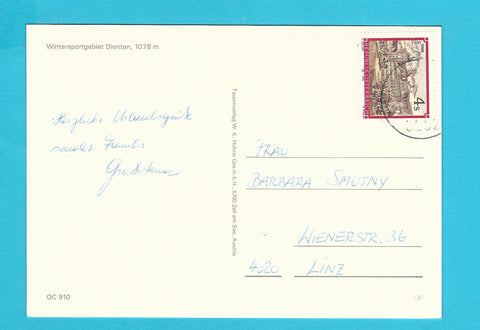 Wintersportgebiet Dienten, 1078 m
Herzliche Urlaubsgrüße
sendet Familie
Tauernverlag W. K. Hühne Ges.m.b.H., 5700 Zell am See, Austria
4s
FRAU
BARBARA SMUTNY
WIENERSTR. 36
4020 LINZ
OC 910